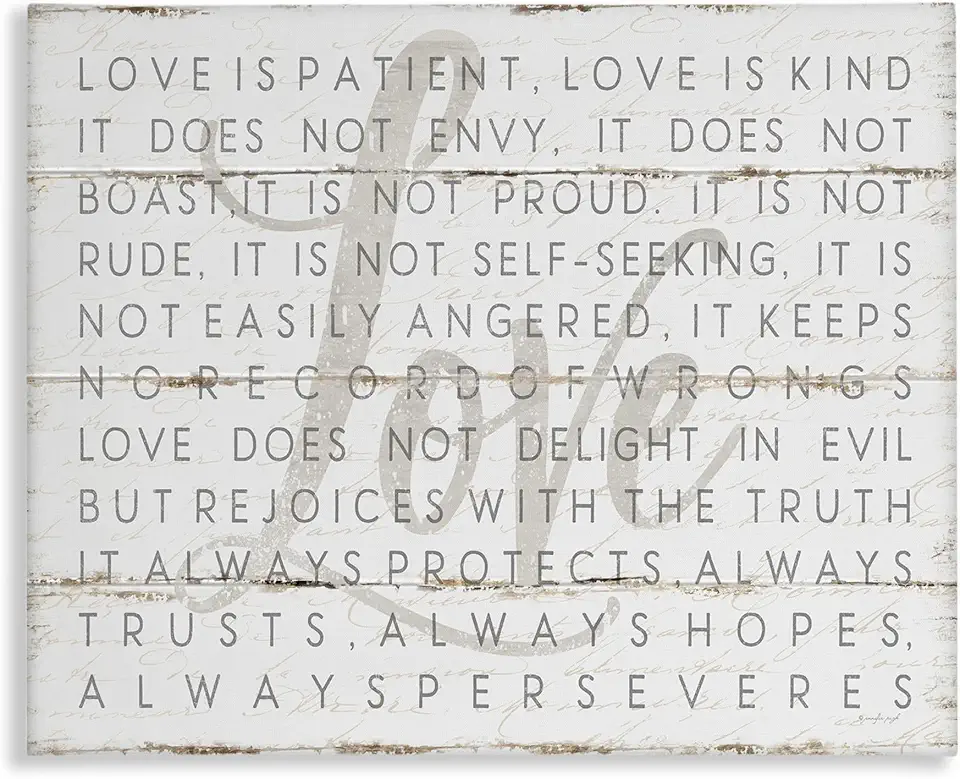 LOVE IS PATIENT, LOVE IS KIND
IT DOES NOT ENVY, IT DOES NOT
BOAST, IT IS NOT PROUD. IT IS NOT
RUDE, IT IS NOT SELF-SEEKING, IT IS
NOT EASILY ANGERED, IT KEEPS
NO RECORD OF WRONGS
LOVE DOES NOT DELIGHT IN EVIL
BUT REJOICES WITH THE TRUTH
IT ALWAYS PROTECTS, ALWAYS
TRUSTS, ALWAYS HOPES,
ALWAYS PERSEVERES
Love